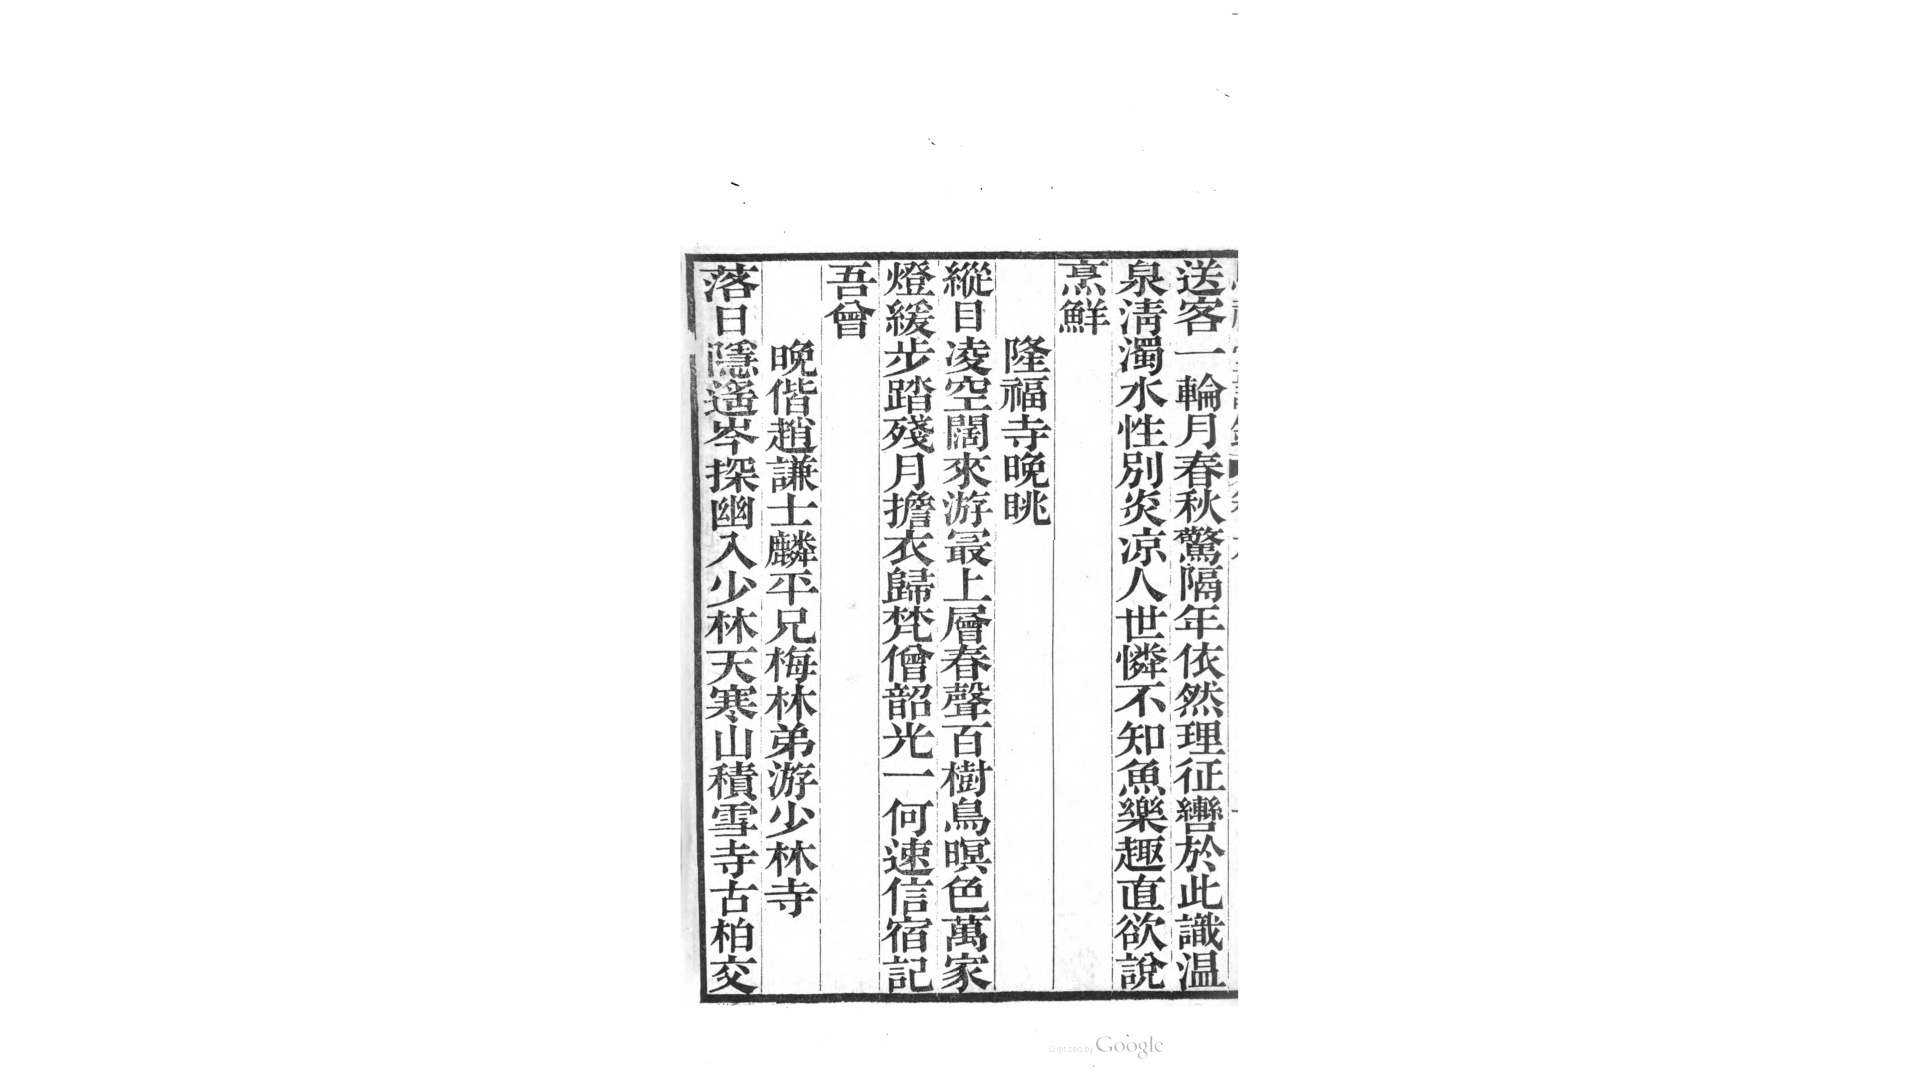 送客一輪月春秋驚隔年依然理征轡於此識温
泉淸濁水性別炎凉人世憐不知魚樂趣直欲說
烹鮮
隆福寺晚眺
縱目凌空闊來游最上層春聲百樹鳥暝色萬家
燈緩步踏殘月擔衣歸梵僧韶光一何速信宿記
吾曾
晚偕趙謙士麟平兄梅林弟游少林寺
落日隱遙岑探幽入少林天寒山積雪寺古柏交
Digitized by Google